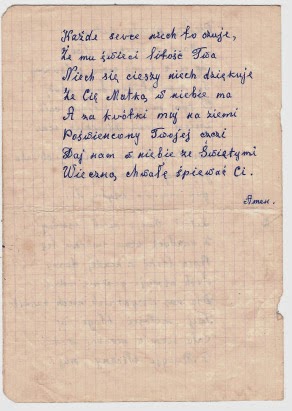 Każde serce niech to czuje,
Że mu świeci litość Twa
Niech się cieszy niech dziękuje
Że Cię Matką w niebie ma
A za krótki maj na ziemi
Poświęcony Twojej czci
Daj nam w niebie ze Świętymi
Wieczną Chwałę śpiewać Ci.
Amen.